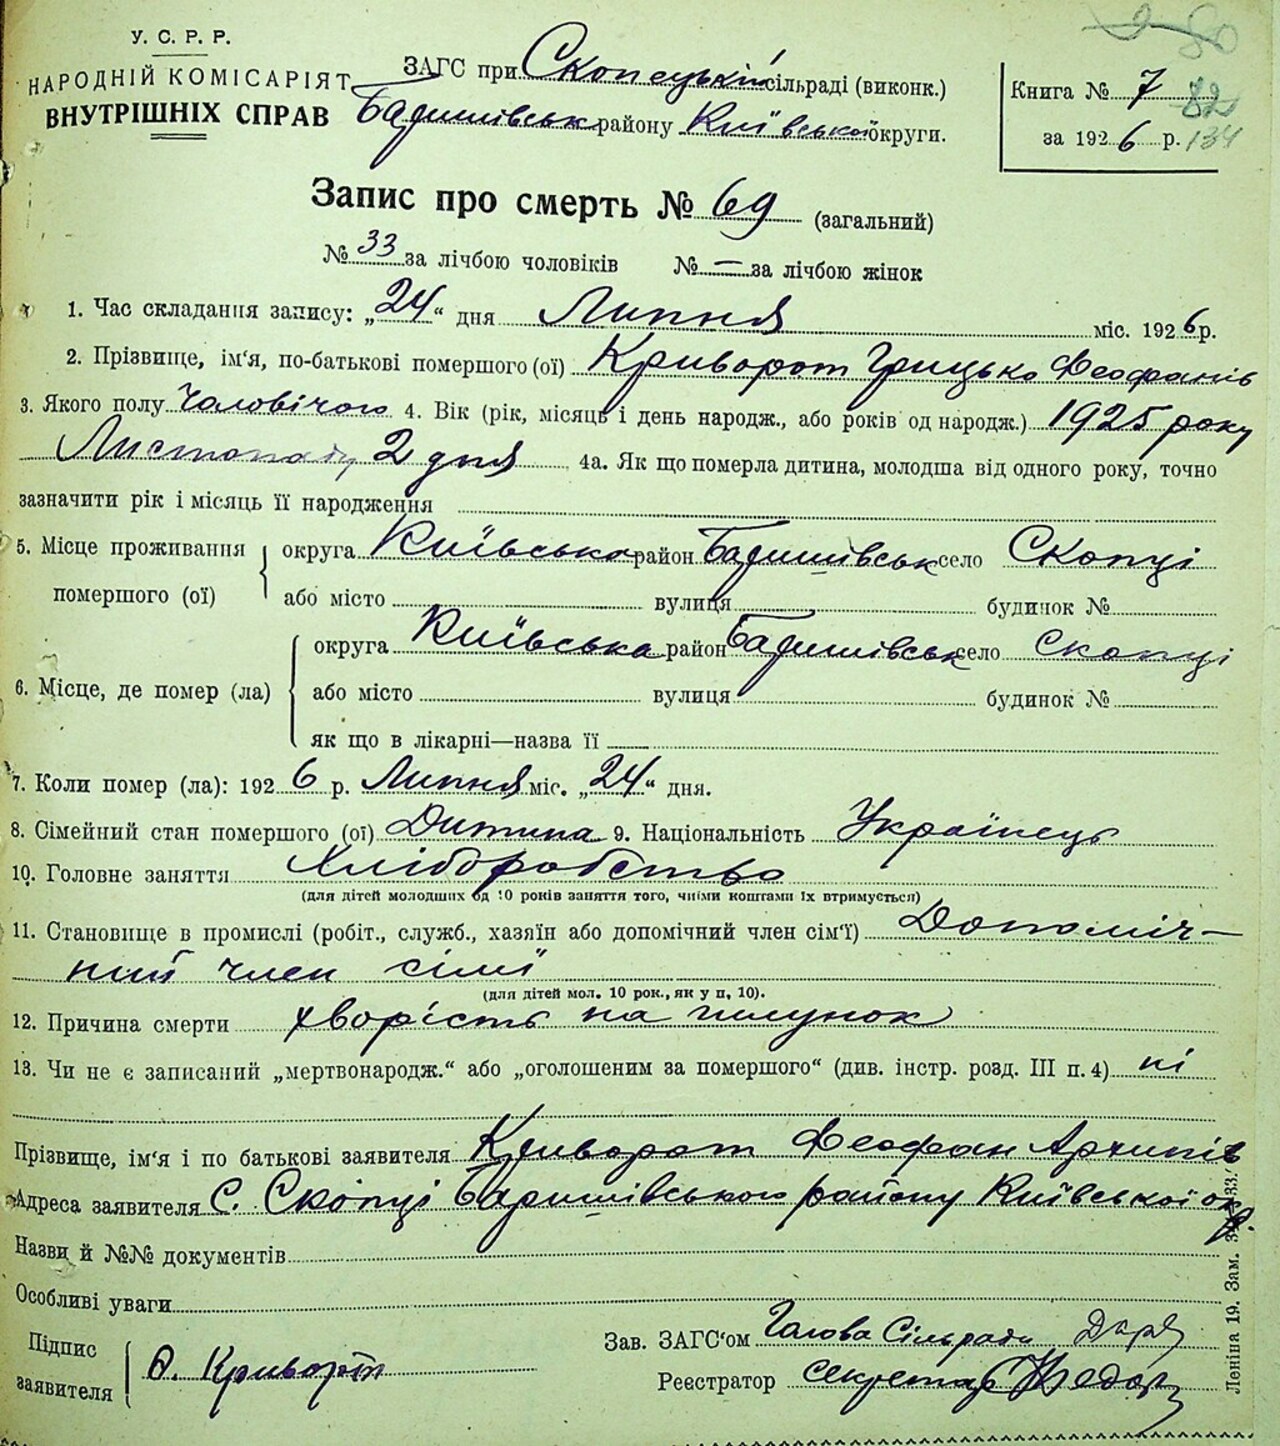 У. С. Р. Р.
НАРОДНІЙ КОМІСАРІЯТ
ВНУТРІШНІХ СПРАВ
ЗАГС при Скопецький сільраді (виконк.)
Баришівськ району Київської округи.
Книга № 7
80
82
за 1926 р. 134
Запис про смерть № 69 (загальний)
№ 33 за лічбою чоловіків № — за лічбою жінок
1. Час складання запису: „24“ дня Липня міс. 1926 р.
2. Прізвище, ім'я, по-батькові помершого (ої) Криворот Грицько Феофанів
3. Якого полу Чоловічого 4. Вік (рік, місяць і день народж., або років од народж.) 1925 року
Листопаду 2 дня 4а. Як що померла дитина, молодша від одного року, точно
зазначити рік і місяць її народження
5. Місце проживання помершого (ої) округа Київська район Баришівськ село Скопці
або місто вулиця будинок №
6. Місце, де помер (ла) округа Київська район Баришівськ село Скопці
або місто вулиця будинок №
як що в лікарні—назва її
7. Коли помер (ла): 1926 р. Липня міс. „24“ дня.
8. Сімейний стан помершого (ої) Дитина 9. Національність Українець
10. Головне заняття Хліборобство
(для дітей молодших од 10 років заняття того, чиїми коштами їх втримується)
11. Становище в промислі (робіт., служб., хазяїн або допомічний член сім'ї) Допоміч–
ний член сімї
(для дітей мол. 10 рок., як у п, 10).
12. Причина смерти хворість на шлунок
13. Чи не є записаний „мертвонародж.“ або „оголошеним за помершого“ (див. інстр. розд. III п. 4) ні
Прізвище, ім'я і по батькові заявителя Криворот Феофан Архипів
Адреса заявителя С. Скопці Баришівського району Київської окр.
Назви й №№ документів
Особливі уваги
Підпис заявителя Ф. Криворот
Зав. ЗАГС'ом Голова Сільради
Реєстратор секретар
Леніна 19. Зам.